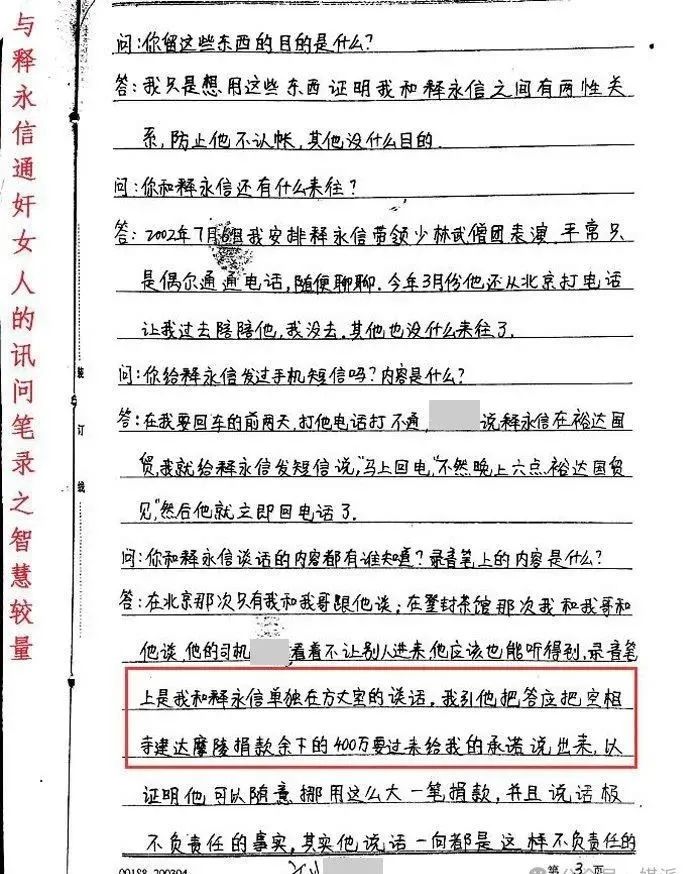 与释永信通奸女人的讯问笔录之智慧较量
装
订
线
问:你留这些东西的目的是什么?
答:我只是想用这些东西证明我和释永信之间有两性关
系,防止他不认帐,其他没什么目的.
问:你和释永信还有什么来往?
答:2002年7月6日我安排释永信带领少林武僧团表演.平常只
是偶尔通通电话,随便聊聊.今年3月份他还从北京打电话
让我过去陪陪他,我没去.其他也没什么来往了.
问:你给释永信发过手机短信吗?内容是什么?
答:在我要回车的前两天,打他电话打不通, 说,释永信在裕达国
贸,我就给释永信发短信说,"马上回电,"不然晚上六点裕达国贸
见,"然后他就立即回电话了.
问:你和释永信谈话的内容都有谁知道?录音笔上的内容是什么?
答:在北京那次只有我和我哥跟他谈;在登封茶馆那次我和我哥和
他谈,他的司机 看着不让别人进来,他应该也能听得到,录音笔
上是我和释永信单独在方丈室的谈话。我引他把答应把空相
寺建达摩陵捐款余下的400万要过来给我的承诺说出来,以
证明他可以随意挪用这么大一笔捐款,并且说话极
不负责任的事实,其实他说话一向都是这样不负责任的
00188 200304
第 3 页
公众号 · 媒派